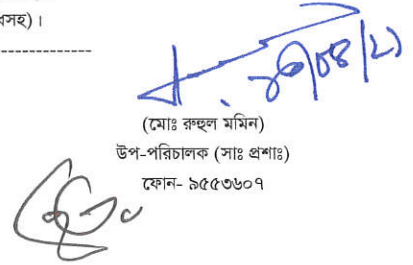 বসহ)।
(মোঃ রুহুল মমিন)
উপ-পরিচালক (সাঃ প্রশাঃ)
ফোন- ৯৫৫৩৬০৭